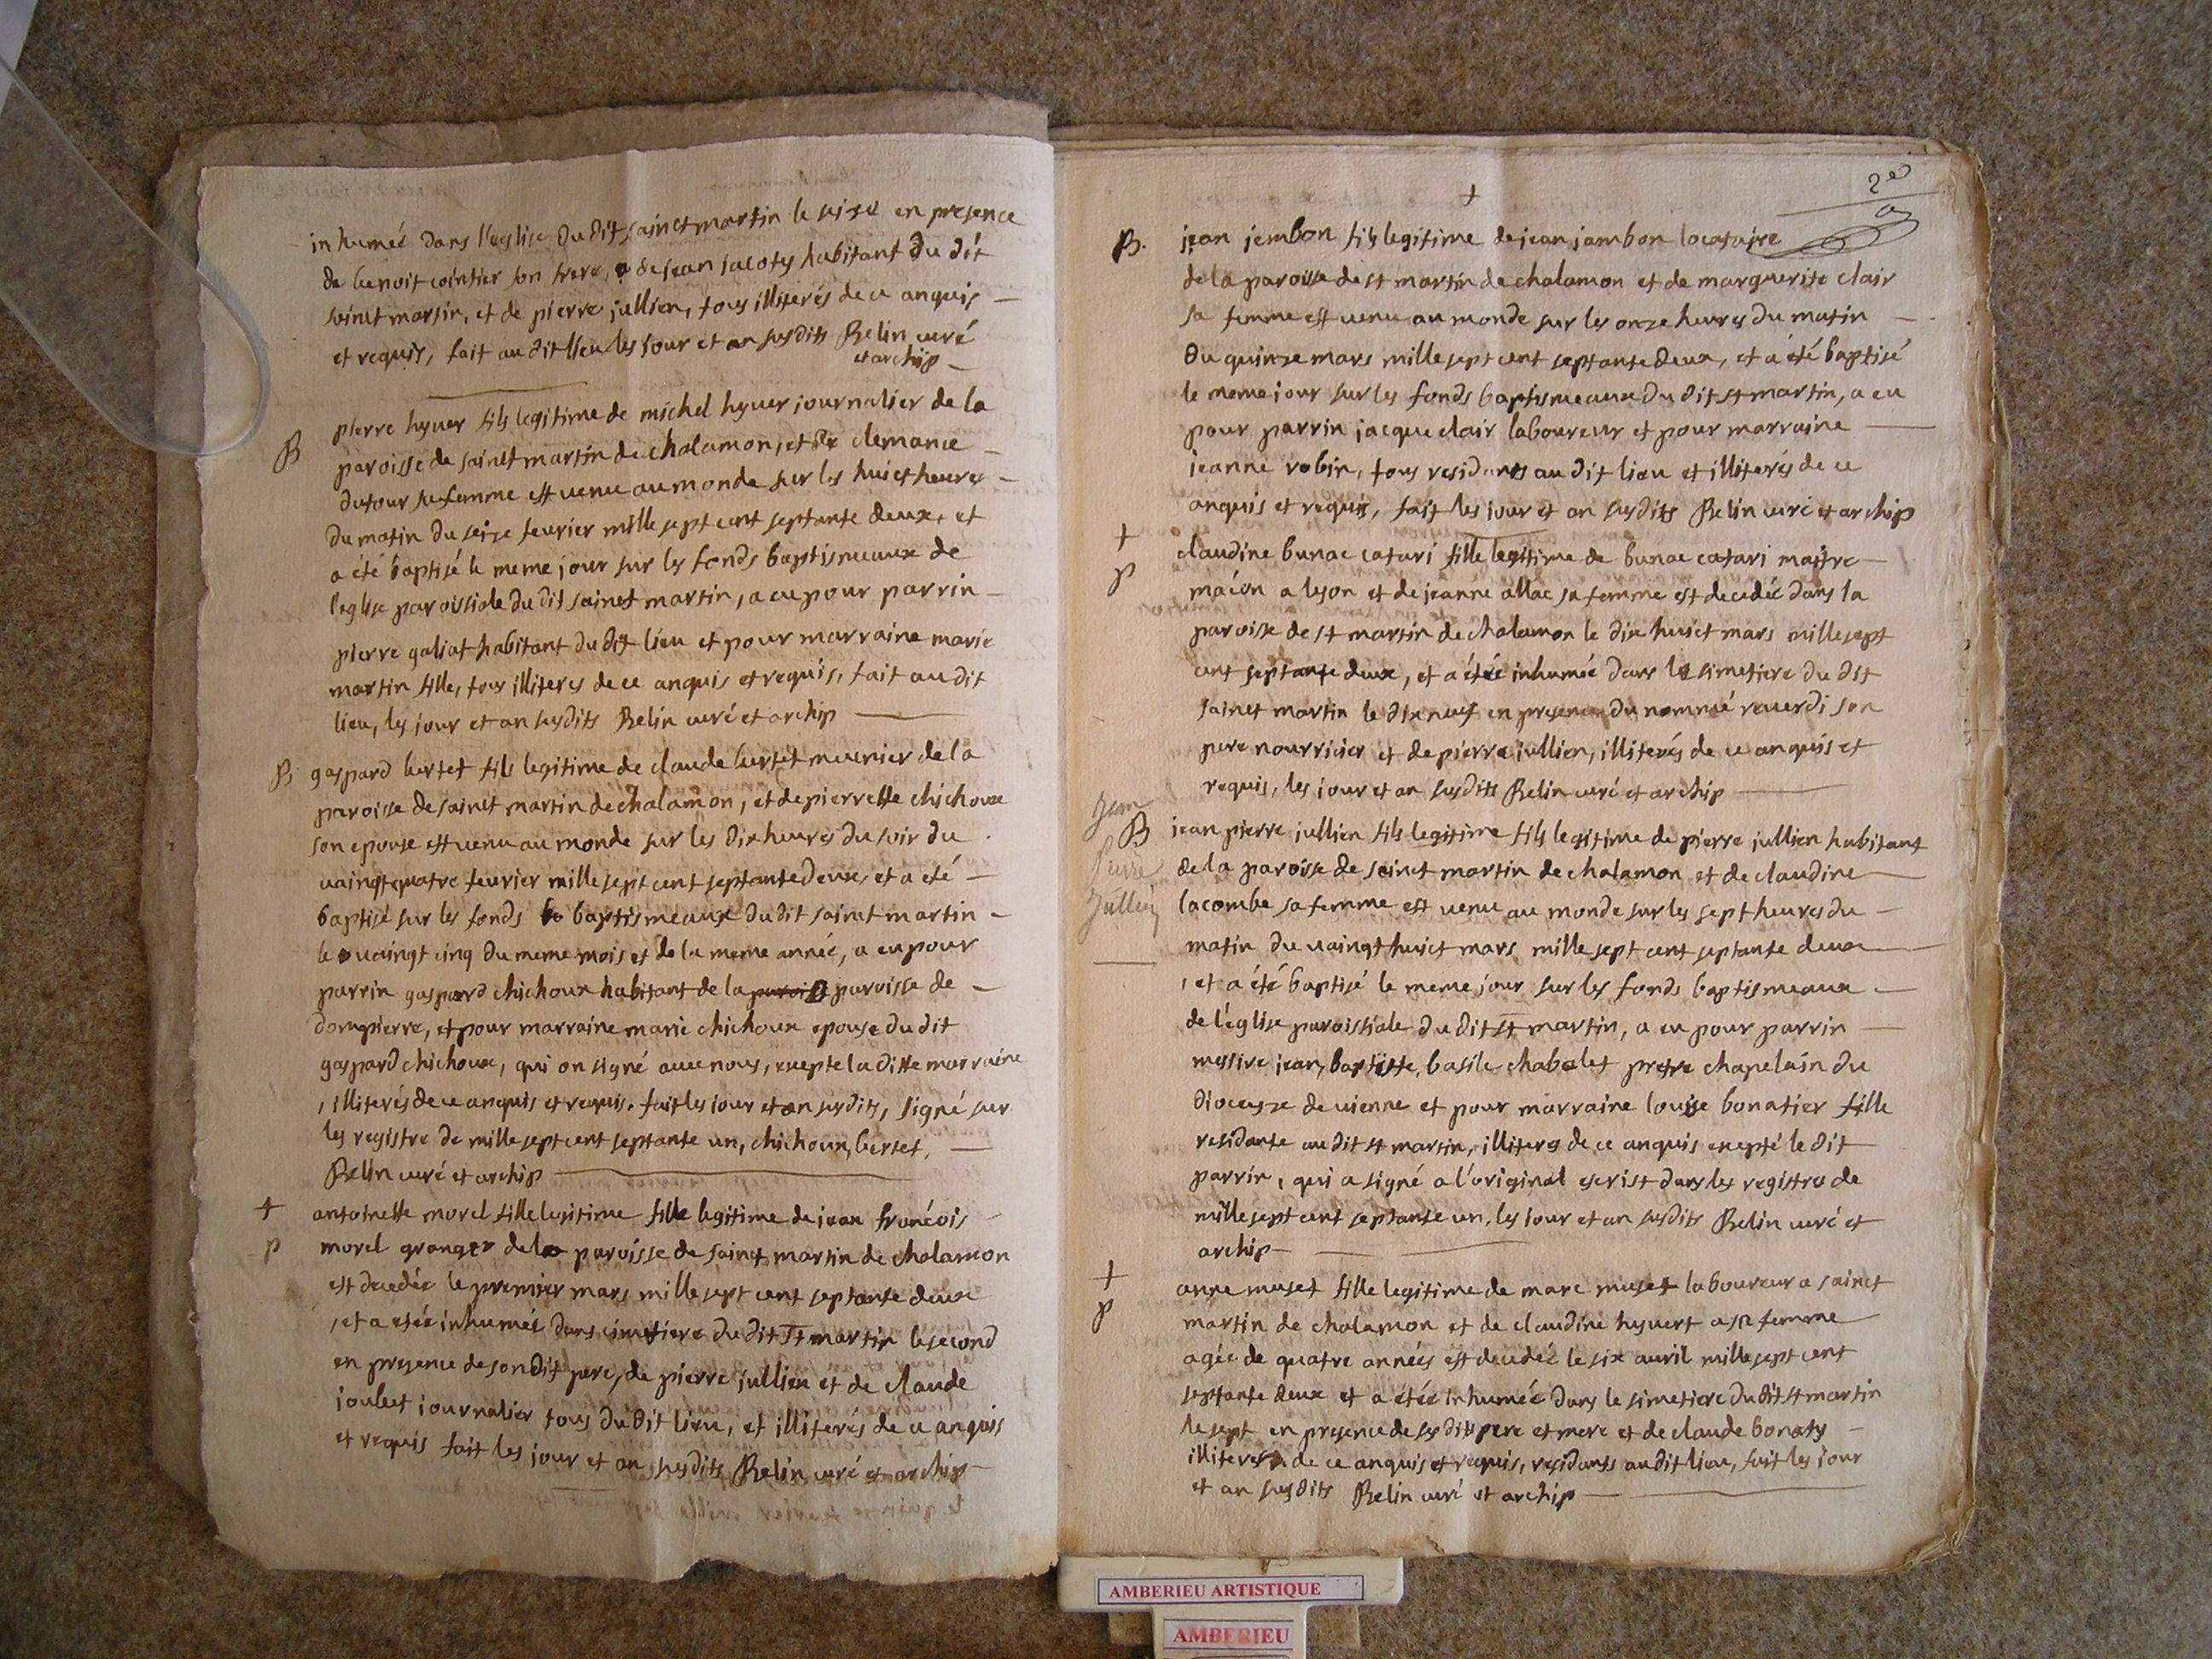 inhumée dans l'eglise du dit sainct martin le seize en presence
de benoit cointier son frere, de jean jacotys habitant du dit
sainct martin, et de pierre jullien, tous illiterés de ce anquis
et requis, fait au dit lieu les jour et an susdits Belin curé
et archip
B pierre hyuer fils legitime de michel hyuer journalier de la
paroisse de sainct martin de chalamon, et de clemance
dutour sa femme est venu au monde sur les huict heures
du matin du seize feurier mille sept cent septante deux, et
a été baptisé le meme jour sur les fonds baptismeaux de
l'eglise paroissiale du dit sainct martin, a eu pour parrin
pierre galiat habitant du dit lieu et pour marraine marie
martin fille, tous illiteres de ce anquis et requis, fait au dit
lieu, les jour et an susdits Belin curé et archip
B gaspard bertet fils legitime de claude bertet meunier de la
paroisse de sainct martin de chalamon, et de pierrette chichoux
son epouse est venu au monde sur les dix heures du soir du
vaingt quatre feurier mille sept cent septante deux, et a été
baptisé sur les fonds baptismeaux du dit sainct martin
le vaingt cinq du meme mois et de la meme année, a eu pour
parrin gaspard chichoux habitant de la paroisse de
dompierre, et pour marraine marie chichoux epouse du dit
gaspard chichoux, qui on signé avec nous, exepte la ditte marraine
, illiterés de ce anquis et requis. fait les jour et an susdits, signé sur
les registre de mille sept cent septante un, chichoux, bertet,
Belin curé et archip
+ antoinette morel fille legitime fille legitime de jean francois
p morel granger de la paroisse de sainct martin de chalamon
est decedée le premier mars mille sept cent septante deux
, et a etée inhumée dans cimetiere du dit st martin le second
en presence de son dit pere, de pierre jullien et de claude
joubet journalier tous du dit lieu, et illiterés de ce anquis
et requis fait les jour et an susdits Belin curé et archip
2e
+
B. jean jembon fils legitime de jean jambon locataire
de la paroisse de st martin de chalamon et de marguerite clair
sa femme est venu au monde sur les onze heures du matin
du quinze mars mille sept cent septante deux, et a été baptisé
le meme jour sur les fonds baptismeaux du dit st martin, a eu
pour parrin jacque clair laboureur et pour marraine
jeanne robin, tous residants au dit lieu et illiterés de ce
anquis et requis, fait les jour et an susdits Belin curé et archip
+ claudine bunac catari fille legitime de bunac catari maitre
p macon a leson et de jeanne allac sa femme est decedée dans la
paroisse de st martin de chalamon le dix huict mars mille sept
cent septante deux, et a étée inhumée dans le simetiere du dit
sainct martin le dix neuf en presence du nommé reverdi son
pere nourricier et de pierre jullien, illiterés de ce anquis et
requis, les jour et an susdits Belin curé et archip
Jean
Pierre
Jullien
B jean pierre jullien fils legitime fils legitime de pierre jullien habitant
de la paroisse de sainct martin de chalamon et de claudine
lacombe sa femme est venu au monde sur les sept heures du
matin du vaingt huict mars mille sept cent septante deux
, et a été baptisé le meme jour sur les fonds baptismeaux
de l'église paroissiale du dit st martin, a eu pour parrin
messire jean, baptiste, basile chabalet pretre chapelain du
diocesze de vienne et pour marraine louise bonatier fille
residante au dit st martin, illiters de ce anquis exepté le dit
parrin, qui a signé a l'original escrist dans les registre de
mille sept cent septante un, les jour et an susdits Belin curé et
archip
+ anne muset fille legitime de marc muset laboureur a sainct
p martin de chalamon et de claudine hyvert a sa femme
agée de quatre années est decedée le six auril mille sept cent
septante deux et a étée inhumée dans le simetiere du dit st martin
le sept en presence de ses dits pere et mere et de claude bonaty
illiteres de ce anquis et requis, residants au dit lieu, fait les jour
et an susdits Belin curé et archip
AMBERIEU ARTISTIQUE
AMBERIEU